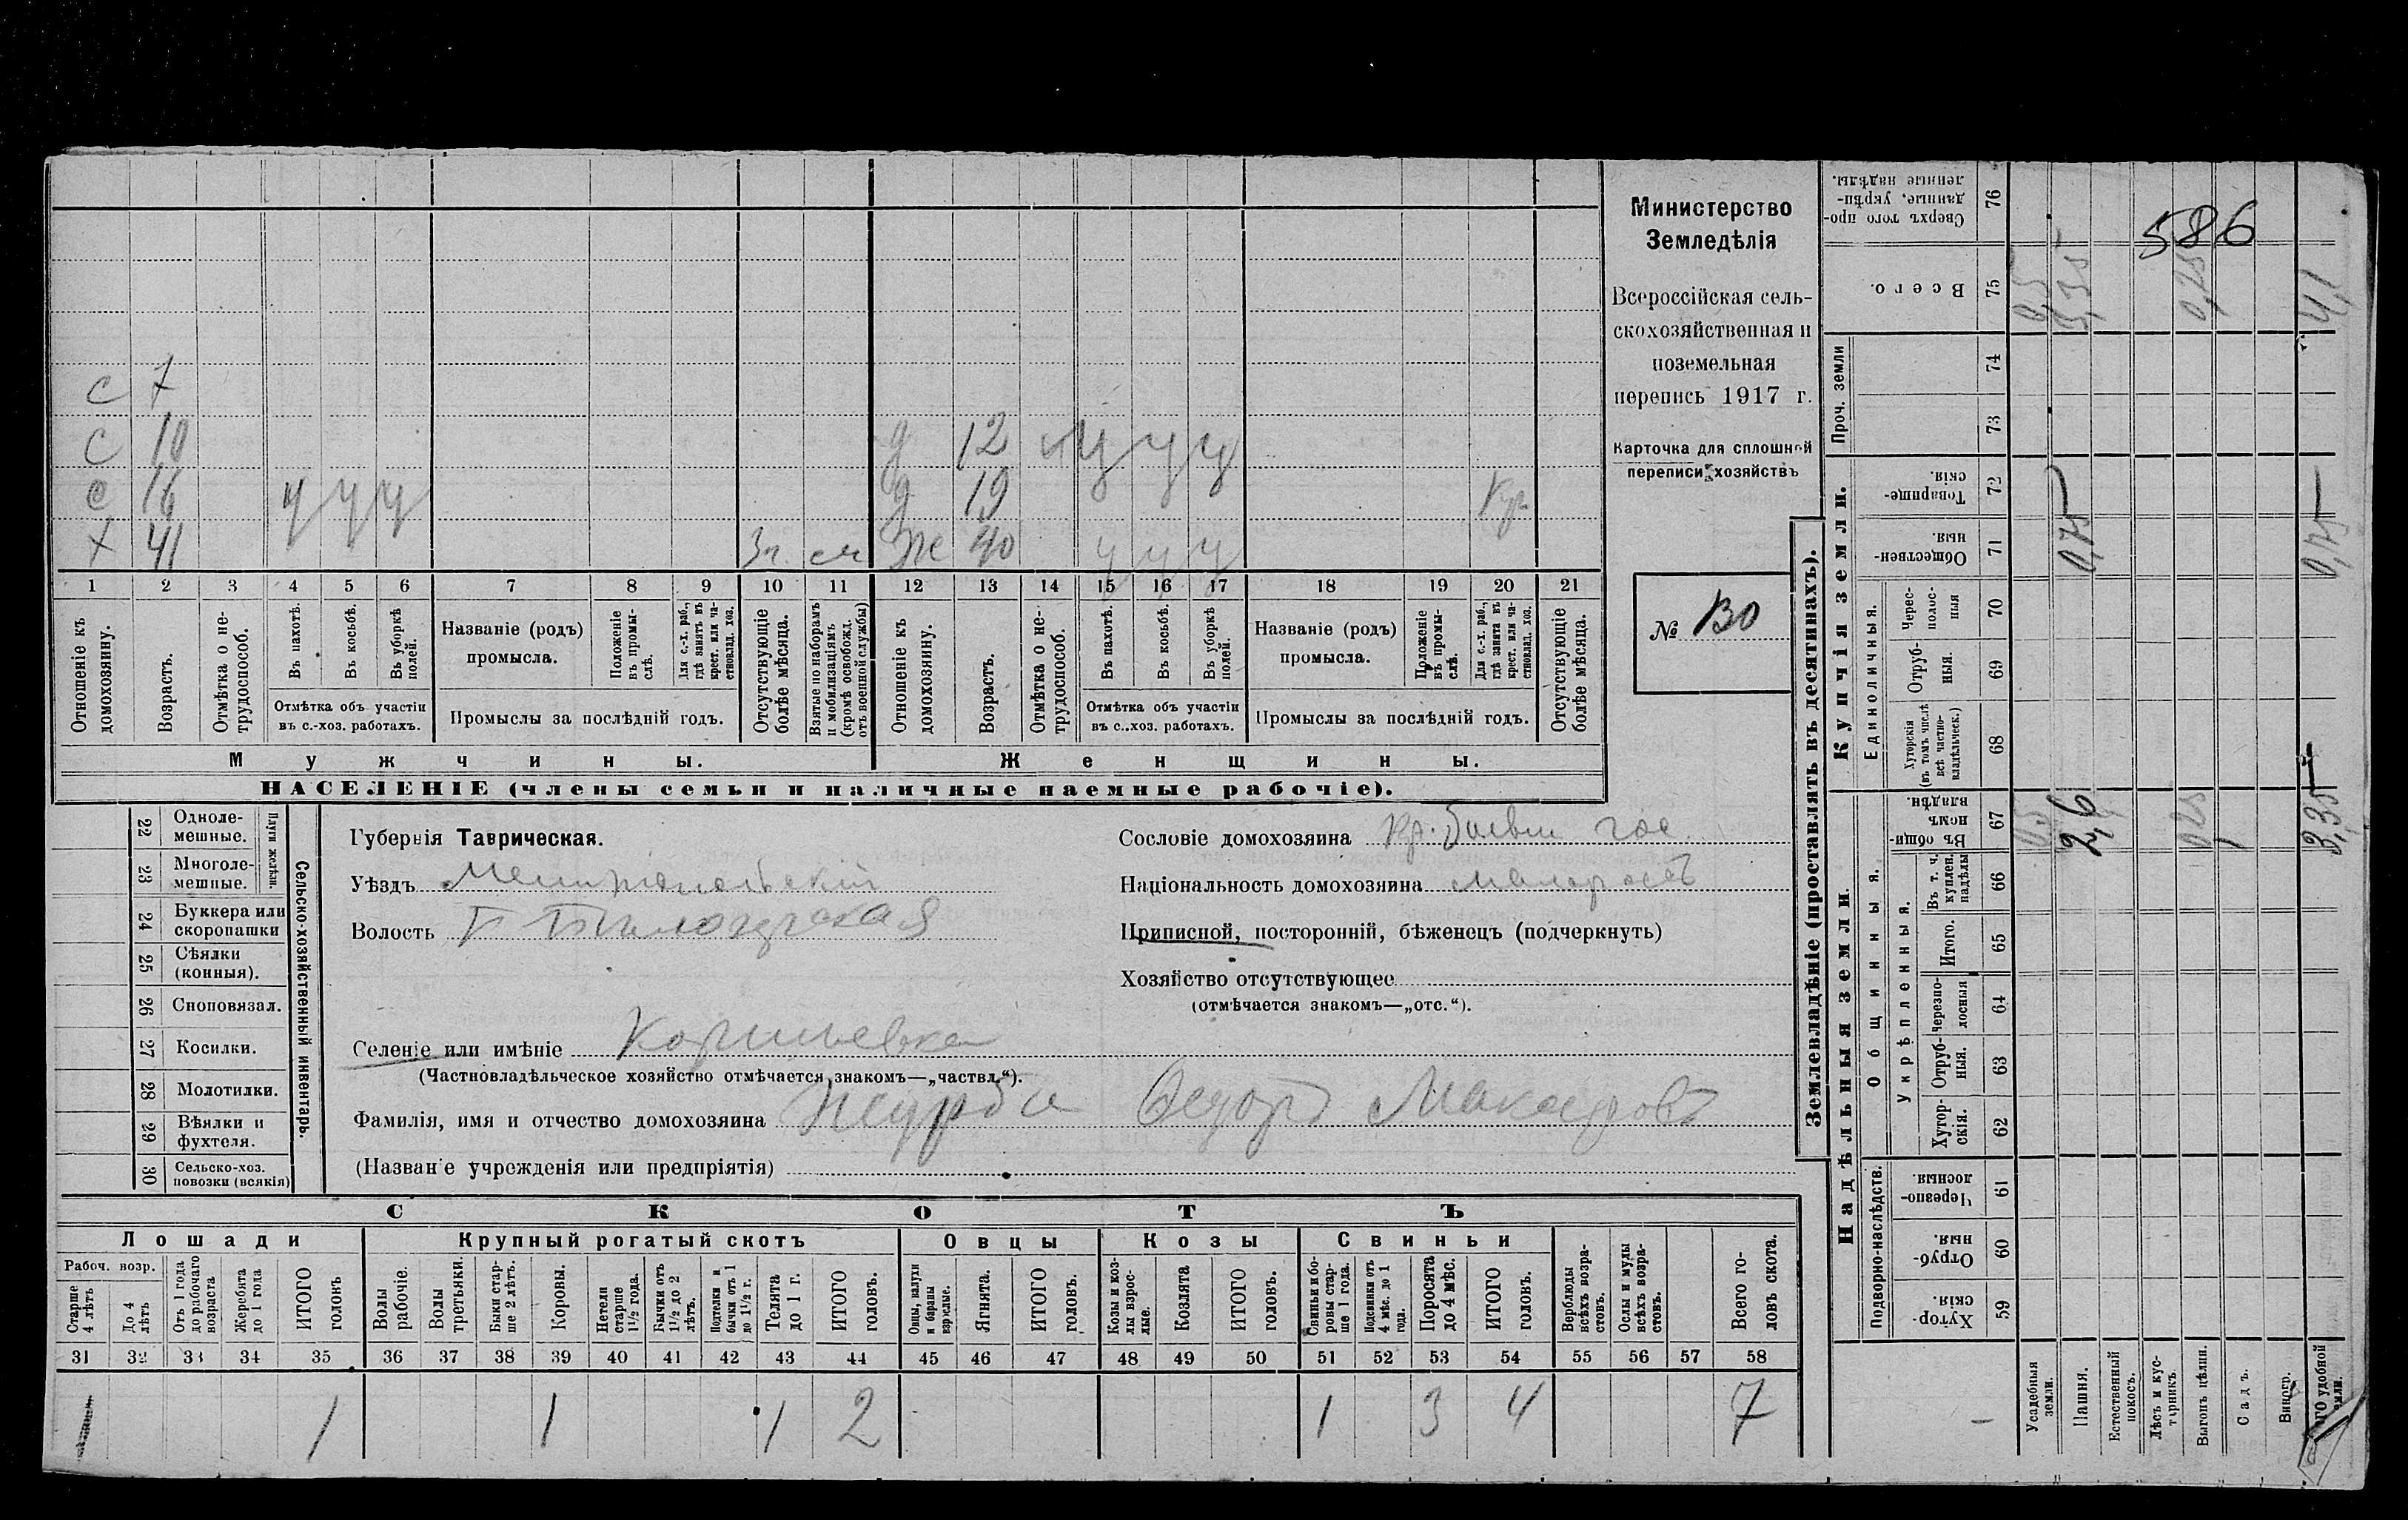 586
Министерство
Земледѣлія
Всероссійская сель-
скохозяйственная и
поземельная
перепись 1917 г.
Карточка для сплошной
переписи хозяйствъ
№ 130
с 7
с 10 д 12 у у у
с 16 у у у д 19 кр
х 41 см Ж 40 у у у
1 2 3 4 5 6 7 8 9 10 11 12 13 14 15 16 17 18 19 20 21
Отношеніе къ домохозяину.
Возрастъ.
Отмѣтка о не-трудоспособ.
Въ пахотѣ.
Въ косьбѣ.
Въ уборкѣ полей.
Отмѣтка объ участіи
въ с.-хоз. работахъ.
Названіе (родъ)
промысла.
Положеніе въ промы-слѣ.
Для с.-х. раб., гдѣ занятъ въ крест. или ча-стновлад. хоз.
Промыслы за послѣдній годъ.
Отсутствующіе болѣе мѣсяца.
Взятые по наборамъ и мобилизаціямъ (кромѣ освобожд. отъ военной службы)
Отношеніе къ домохозяину.
Возрастъ.
Отмѣтка о не-трудоспособ.
Въ пахотѣ.
Въ косьбѣ.
Въ уборкѣ полей.
Отмѣтка объ участіи
въ с..хоз. работахъ.
Названіе (родъ)
промысла.
Положеніе въ промы-слѣ.
Для с.-х. раб., гдѣ занята въ крест. или ча-стновлад. хоз.
Промыслы за послѣдній годъ.
Отсутствующіе болѣе мѣсяца.
Мужчины. Женщины.
НАСЕЛЕНІЕ (члены семьи и наличные наемные рабочіе).
Сельско-хозяйственный инвентарь.
Плуги желѣзн.
22 Одноле-мешные.
23 Многоле-мешные.
24 Буккера или скоропашки
25 Сѣялки (конныя).
26 Сноповязал.
27 Косилки.
28 Молотилки.
29 Вѣялки и фухтеля.
30 Сельско-хоз. повозки (всякія)
Губернія Таврическая.
Уѣздъ Мелитопольскій
Волость
Селеніе или имѣніе
(Частновладѣльческое хозяйство отмѣчается знакомъ—„частвл.“).
Фамилія, имя и отчество домохозяина Федоръ
(Названіе учрежденія или предпріятія)
Сословіе домохозяина Кр. бывш гос.
Національность домохозяина малороссъ
Приписной, посторонній, бѣженецъ (подчеркнуть)
Хозяйство отсутствующее
(отмѣчается знакомъ—„отс.“).
СКОТЪ
Лошади Крупный рогатый скотъ Овцы Козы Свиньи
Рабоч. возр.
Старше 4 лѣтъ
До 4 лѣтъ
Отъ 1 года до рабочаго возраста
Жеребята до 1 года
ИТОГО головъ
Волы рабочіе.
Волы третьяки.
Быки стар-ше 2 лѣтъ.
Коровы.
Нетели старше 1½ года.
Бычки отъ 1½ до 2 лѣтъ.
Подтелки и бычки отъ 1 до 1½ г.
Телята до 1 г.
ИТОГО головъ.
Овцы, валухи и бараны взрослые.
Ягнята.
ИТОГО головъ.
Козы и коз-лы взрос-лые.
Козлята
ИТОГО головъ.
Свиньи и бо-ровы стар-ше 1 года.
Подсвинки отъ 4 мѣс. до 1 года.
Поросята до 4 мѣс.
ИТОГО головъ.
Верблюды всѣхъ возра-стовъ.
Ослы и мулы всѣхъ возра-стовъ.
Всего го-ловъ скота.
31 32 33 34 35 36 37 38 39 40 41 42 43 44 45 46 47 48 49 50 51 52 53 54 55 56 57 58
1 1 1 1 2 1 3 4 7
Землевладѣніе (проставлять въ десятинахъ).
Надѣльныя земли. Купчія земли. Проч. земли
Подворно-наслѣдств.
Общинныя.
Укрѣпленныя.
Единоличныя.
59 Хутор-скія.
60 Отруб-ныя.
61 Черезпо-лосныя
62 Хутор-скія.
63 Отруб-ныя.
64 Черезпо-лосныя
65 Итого.
66 Въ т. ч. куплен. надѣлы
67 Въ общи-номъ владѣн.
68 Хуторскія (въ томъ числѣ всѣ частно-владѣльческ.)
69 Отруб-ныя.
70 Черес-полос-ныя
71 Обществен-ныя.
72 Товарище-скія.
73
74
75 Всего.
76 Сверхъ того про-данные, укрѣп-ленные надѣлы.
Усадебныя земли. 0,5 0,5
Пашня. 2,6 0,75 3,35
Естественный покосъ.
Лѣсъ и кус-тарникъ.
Выгонъ цѣлин. 0,25 0,25
Садъ.
Виногр.
удобной земли. 3,35 0,75 4,1